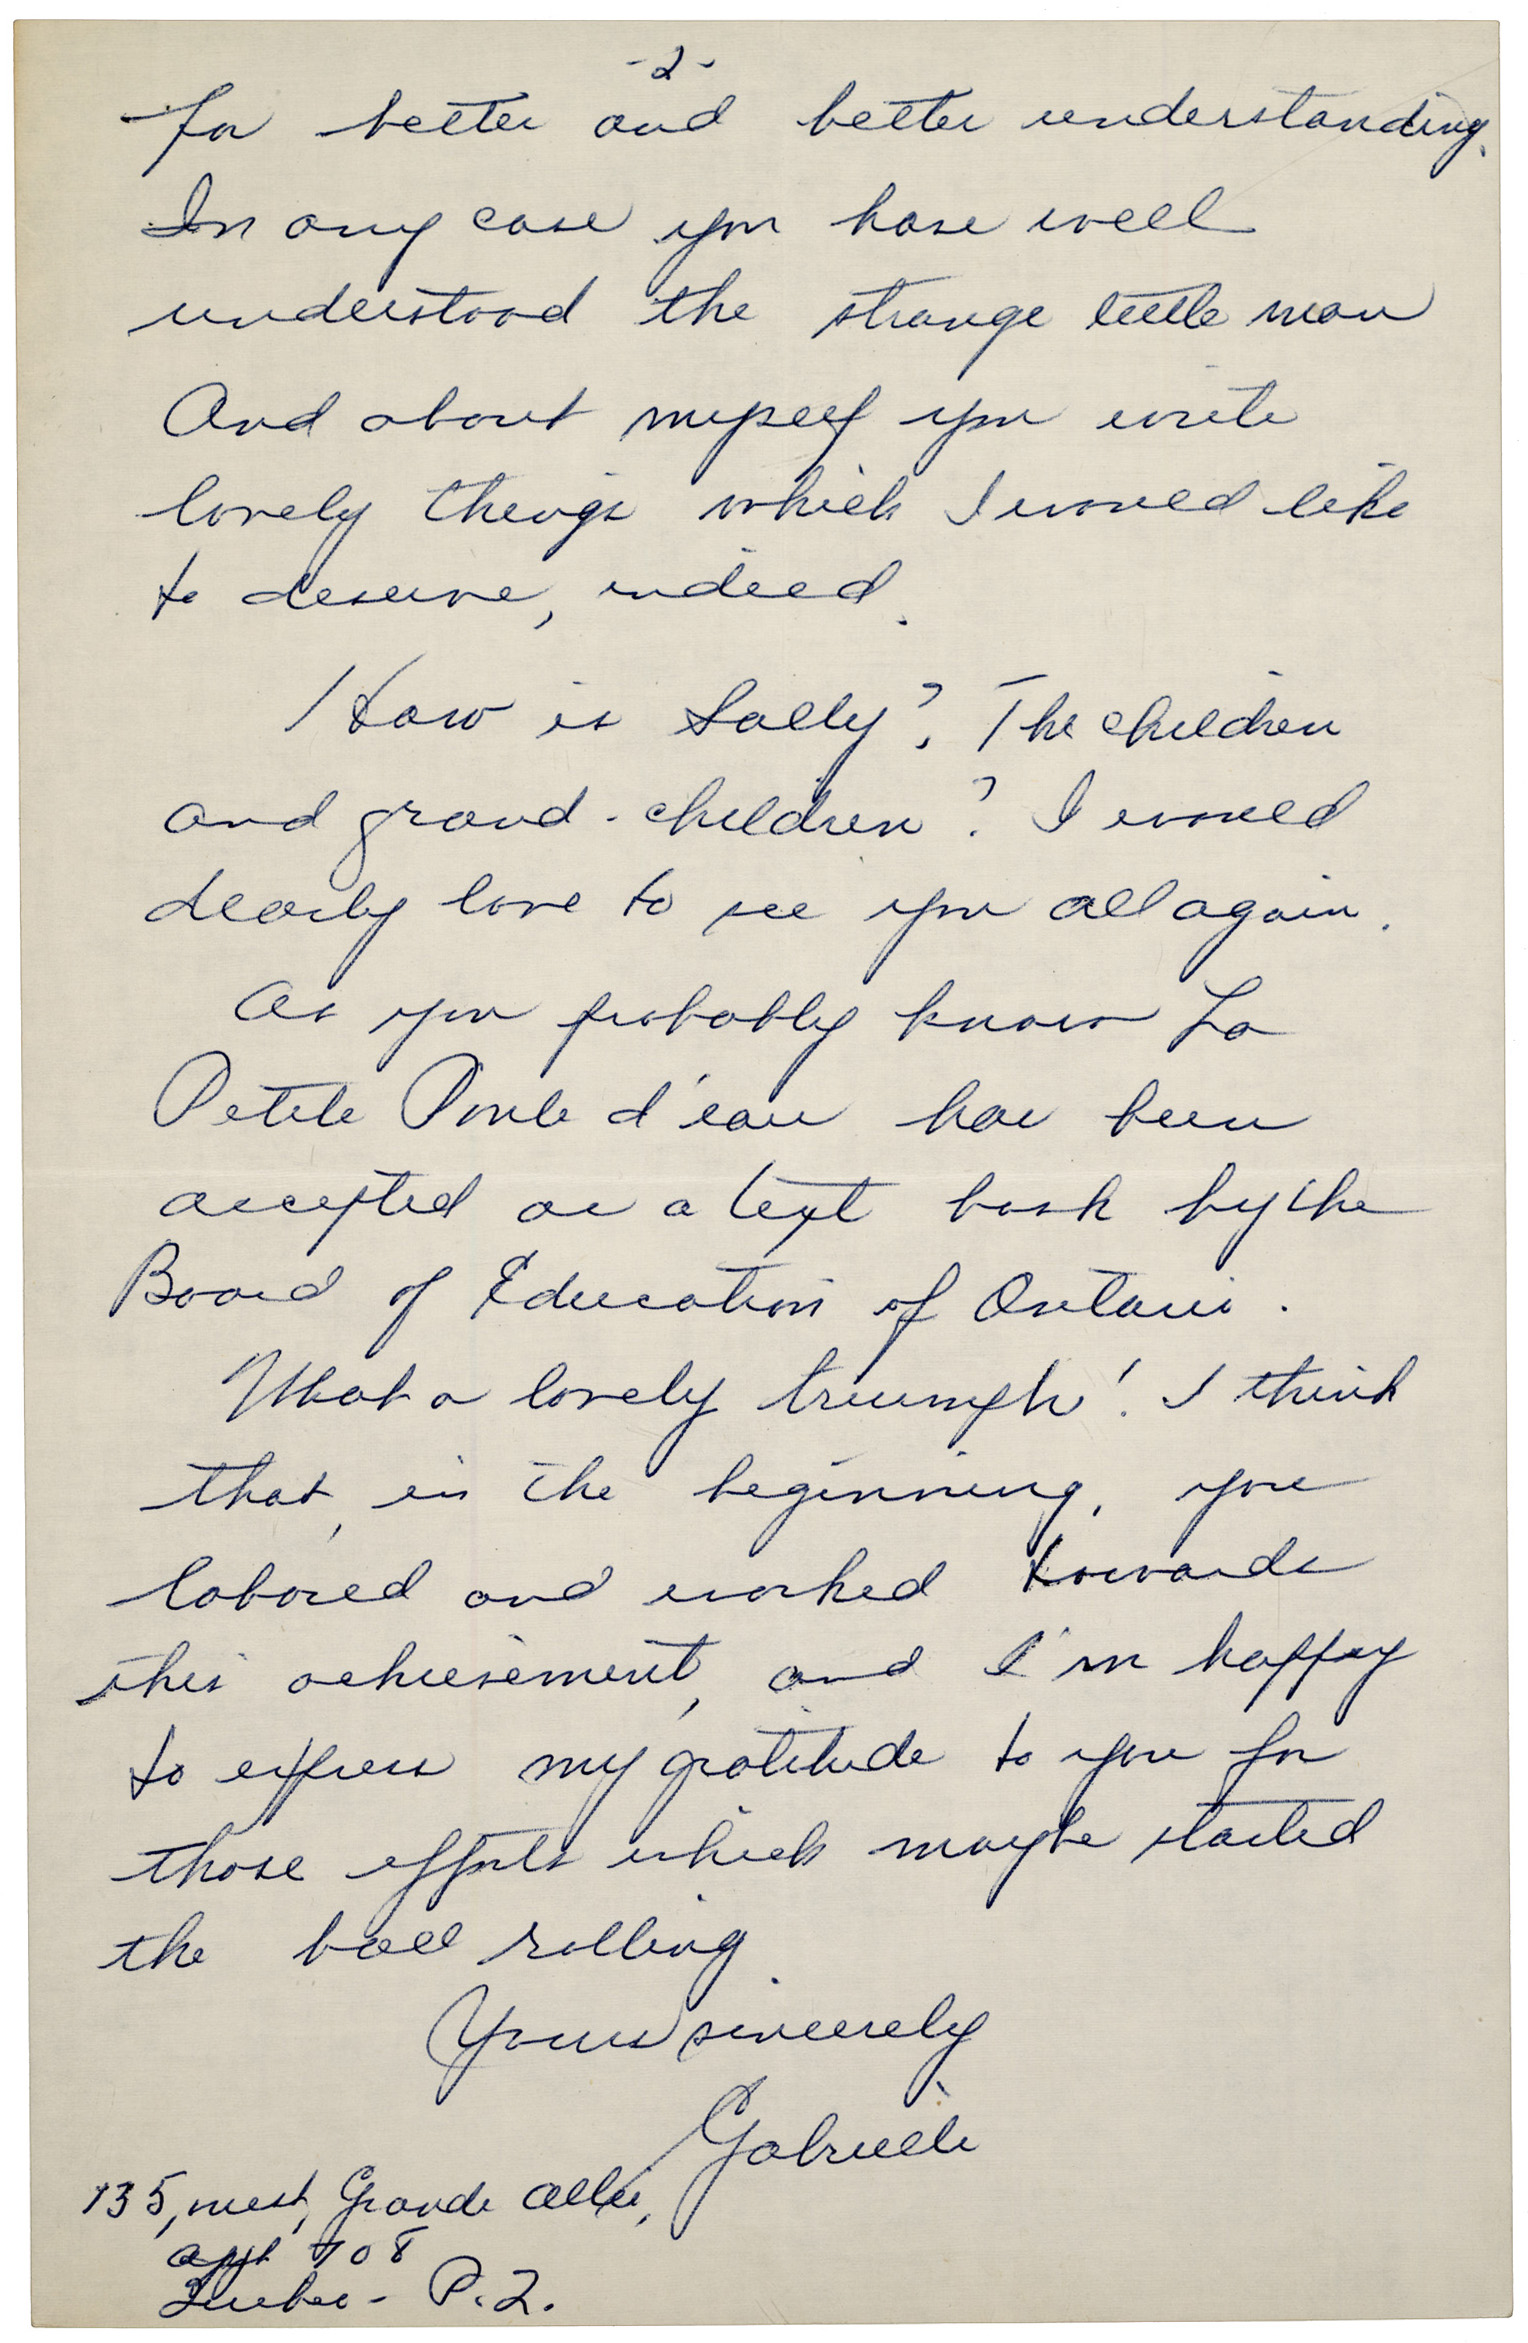 -2-
for better and better understanding.
In any case you have well
understood the strange little man
And about myself you write
lovely things which I would like
to deserve, indeed.
How is Sally? The children
and grand-children? I would
dearly love to see you all again.
As you probably know La
Petite Poule d'eau has been
accepted as a text book by the
Board of Education of Ontario.
What a lovely triumph! I think
that, in the beginning, you
labored and worked towards
this achievement, and I'm happy
to express my gratitude to you for
those efforts which maybe started
the ball rolling.
Yours sincerely
Gabrielle
135, west, Grande Allée,
appt 708
Quebec - P.Q.